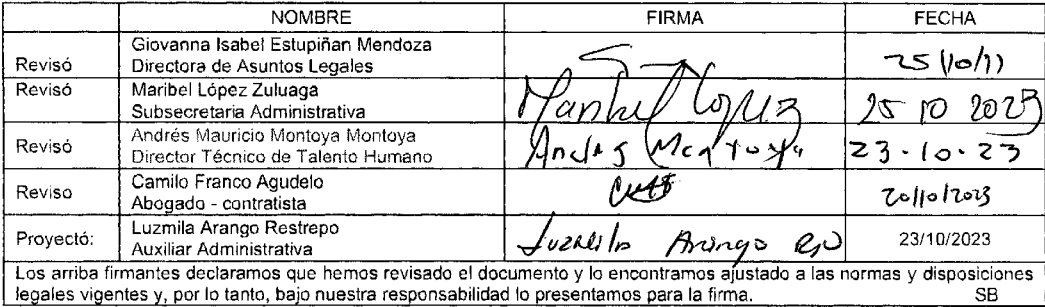 NOMBRE FIRMA FECHA
Giovanna Isabel Estupiñan Mendoza
Revisó Directora de Asuntos Legales 25/10/
Revisó Maribel López Zuluaga
Subsecretaria Administrativa Maribel López 25 10 2023
Andrés Mauricio Montoya Montoya
Revisó Director Técnico de Talento Humano Andrés Montoya 23.10.23
Reviso Camilo Franco Agudelo
Abogado - contratista 20/10/2023
Proyectó: Luzmila Arango Restrepo
Auxiliar Administrativa Luzmila Arango 23/10/2023
Los arriba firmantes declaramos que hemos revisado el documento y lo encontramos ajustado a las normas y disposiciones
legales vigentes y, por lo tanto, bajo nuestra responsabilidad lo presentamos para la firma. SB